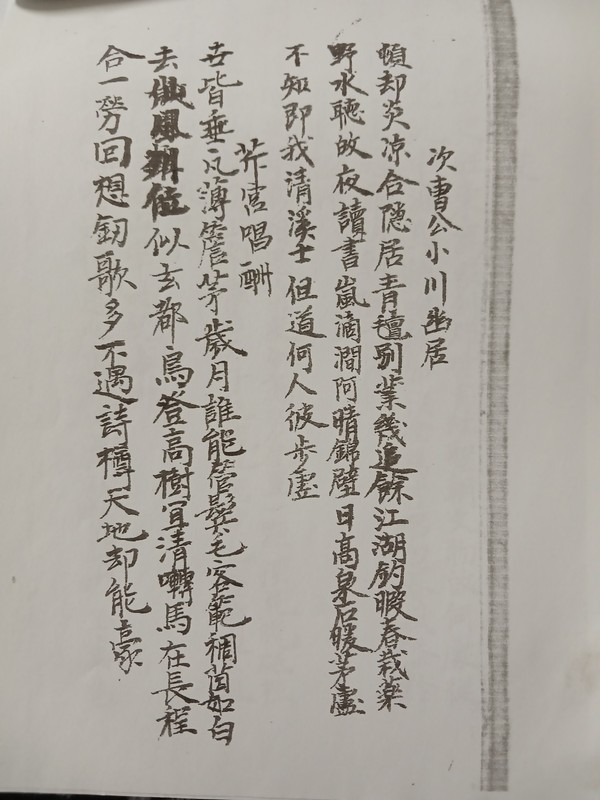 次曺公小川幽居
頓却炎凉合隐居青氊别業幾追餘江湖釣暇春栽藥
野水聽攸夜讀書嵐滴澗阿晴錦壁日高泉石暖茅廬
不知即我清溪士但道何人彼步虛
芹宮唱酬
去皆垂氕薄簷茅歲月誰能管鬓毛容範稠茵如白
去傲風翔位似玄都鳥登高樹宜清囀馬在長程
合一勞回想釖歌多不遇詩樽天地却能豪